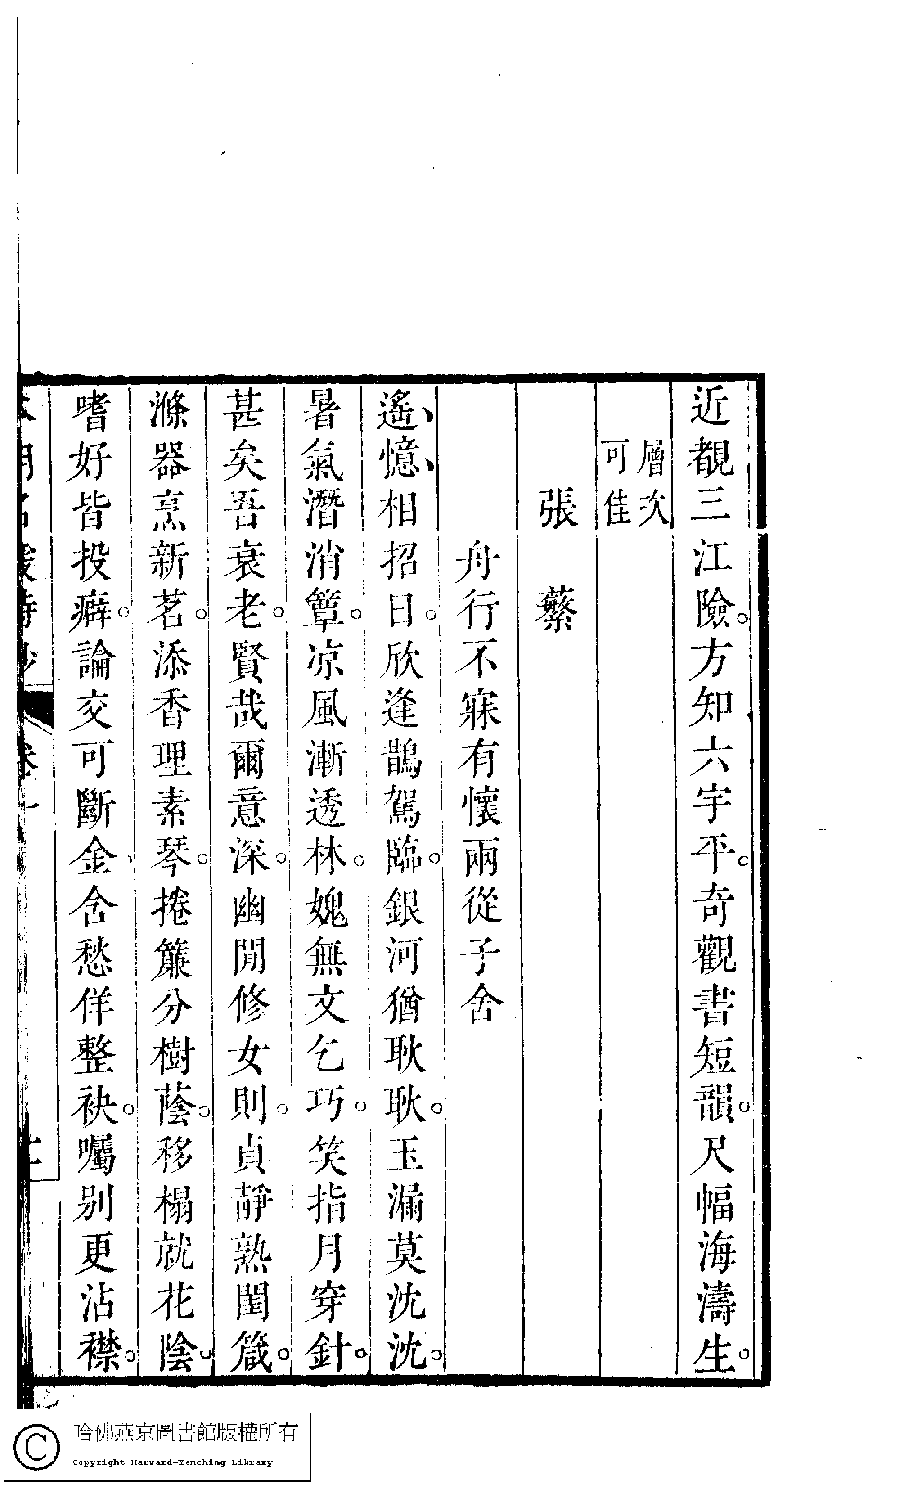 近覩三江險。方知六宇平。奇觀書短韻。尺幅海濤生。
層次
可佳
張蘩
舟行不寐有懷兩從子舍
遙憶相招日。欣逢鵲駕臨。銀河猶耿耿。玉漏莫沈沈。
暑氣潛消簟。凉風漸透林。媿無文乞巧。笑指月穿針。
甚矣吾衰老。賢哉爾意深。幽閒修女則。貞靜熟閨箴。
滌器烹新茗。添香理素琴。捲簾分樹蔭。移榻就花陰。
嗜好皆投癖。論交可斷金。含愁佯整袂。囑别更沾襟。
哈佛燕京圖書館版權所有
Copyright Harvard-Yenching Library